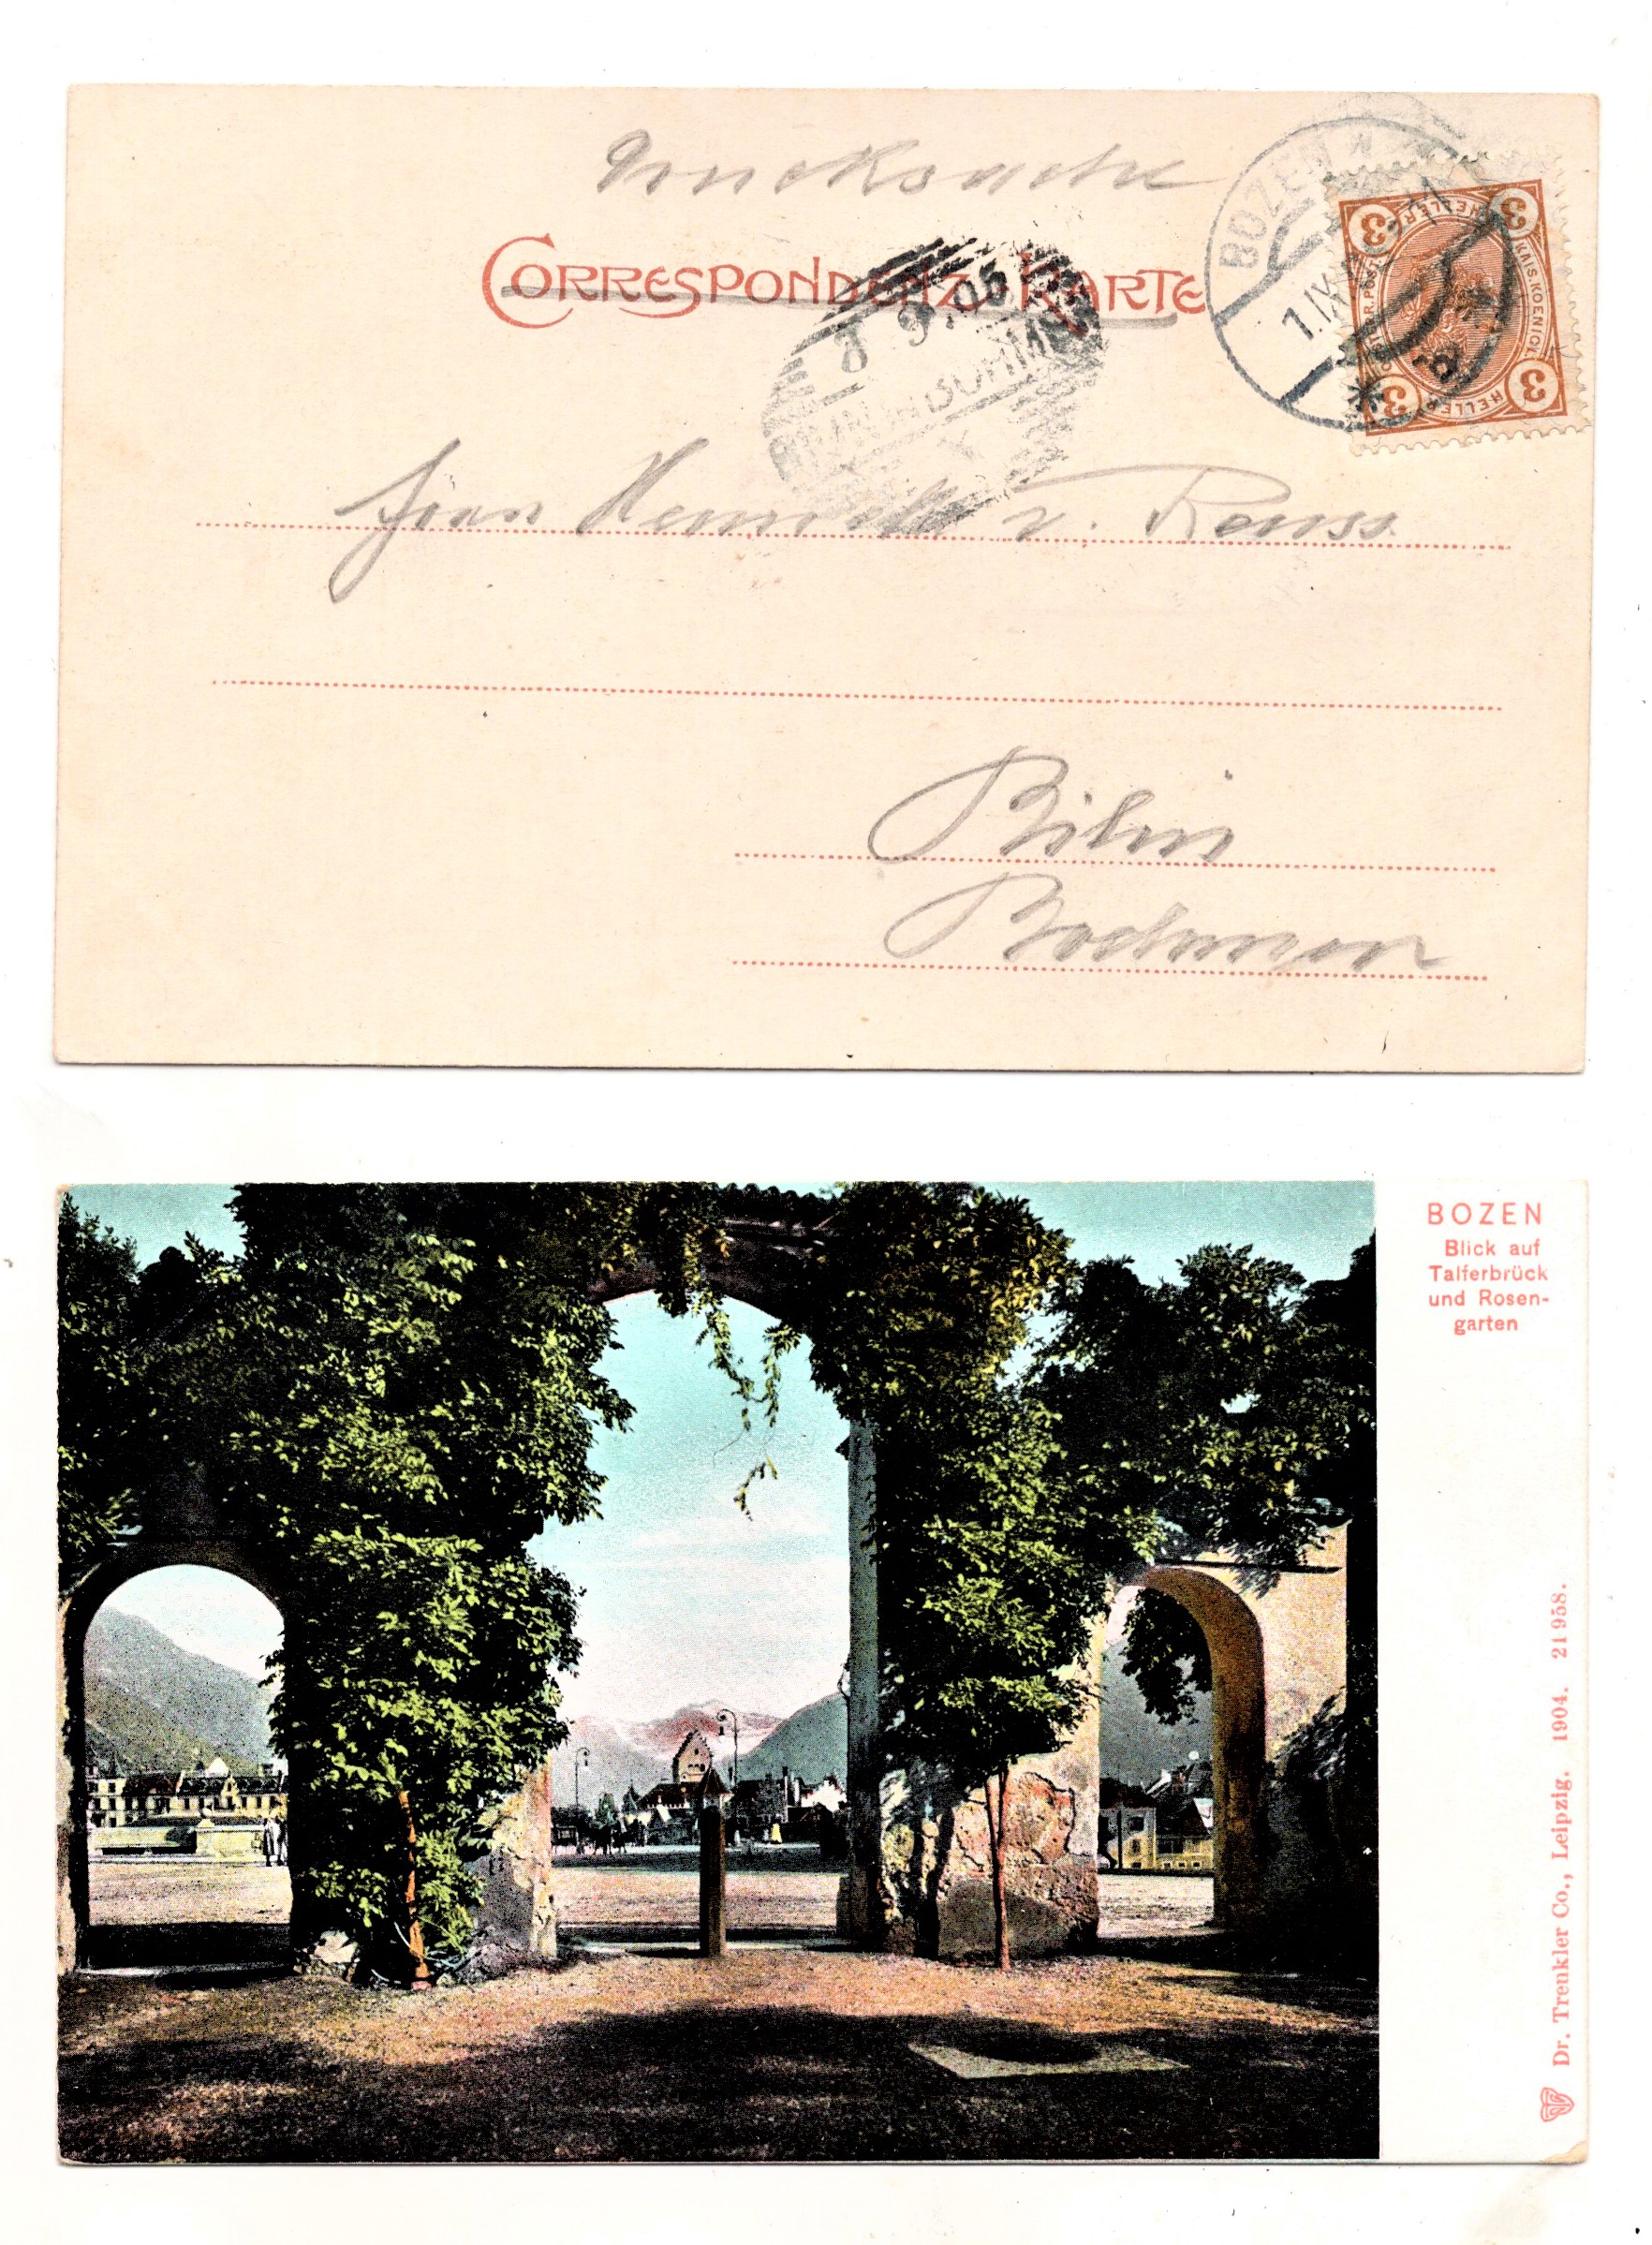 Drucksache
CORRESPONDENZ-KARTE
BOZEN
1.IX
3 HELLER 3
KAIS.KOENIGL. OESTERR.POST
3 HELLER 3
8 9.05
BILIN IN BÖHMEN
Frau Henriette v. Reuss
Bilin
Boehmen
BOZEN
Blick auf
Talferbrück
und Rosen-
garten
Dr. Trenkler Co., Leipzig. 1904. 21958.